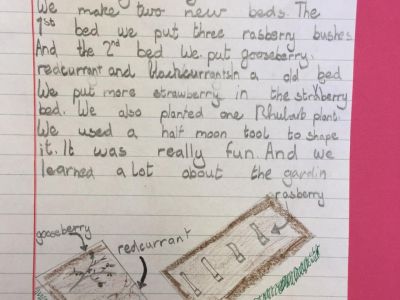 We make two new beds. The
1st bed we put three rasberry bushes
And the 2nd bed we put gooseberry.
redcurrant and blackcurrantsIn a old bed
We put more strawberry in the straberry
bed. We also planted one Rhubarb plant.
We used a half moon tool to shape
it. It was really fun. And we
learned a lot about the gardin
rasberry
gooseberry
redcurrant